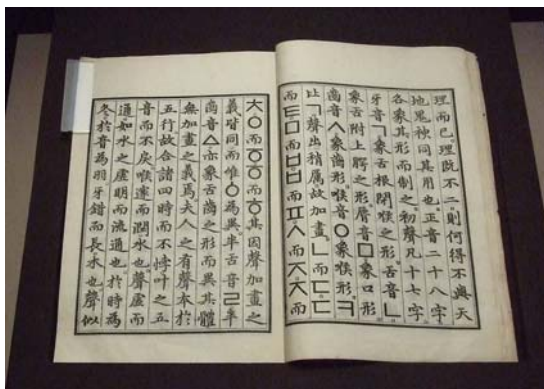 理而已。理既不二。則何得不與天
地鬼神同其用也。正音二十八字
各象其形而制之。初聲凡十七字
牙音ㄱ象舌根閉喉之形。舌音ㄴ
象舌附上腭之形。脣音ㅁ象口形
齒音ㅅ象齒形。喉音ㅇ象喉形。ㅋ
比ㄱ聲出稍厲故加畫。ㄴ而ㄷㄷ
而ㅌㅁ而ㅂㅂ而ㅍㅅ而ㅈㅈ而
ㅊㅇ而ㆆㆆ而ㅎ其因聲加畫之
義皆同而唯ㆁ為異。半舌音ㄹ半
齒音ㅿ亦象舌齒之形而異其體
無加畫之義焉夫人之有聲本於
五行故合諸四時而不悖叶之五
音而不戾喉邃而潤水也聲虛而
通如水之虛明而流通也於時為
冬於音為羽牙錯而長木也聲似